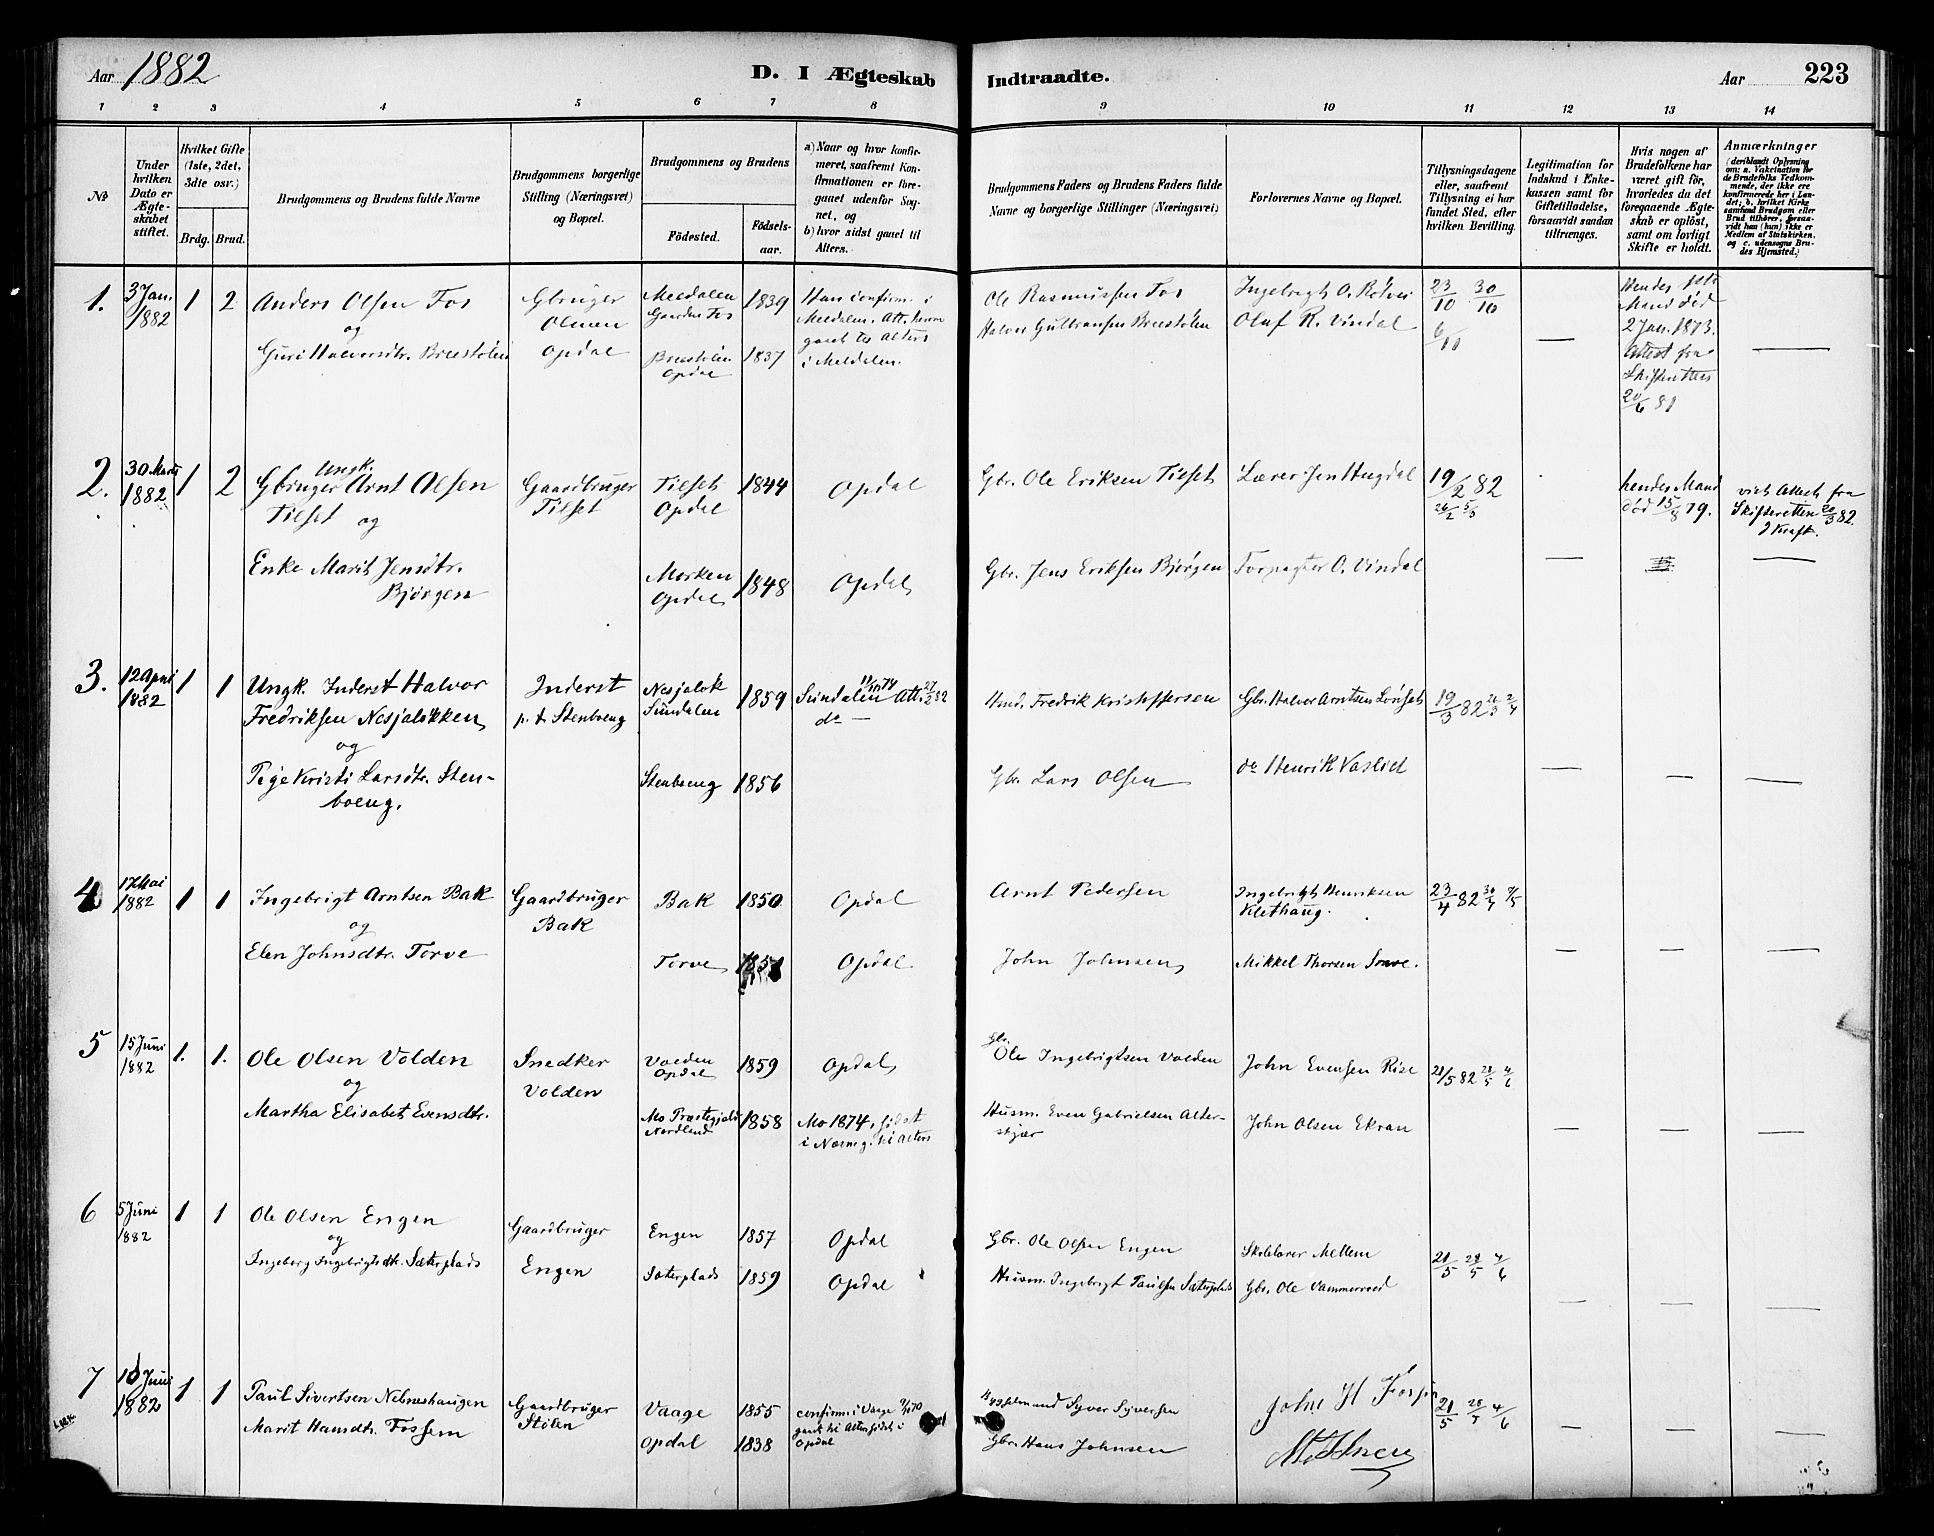 Aar 1882
D. I Ægteskab Indtraadte.
Aar 223
1 2 3 4 5 6 7 8 9 10 11 12 13 14
No
Under hvilken Dato er Ægteskabet stiftet.
Hvilket Gifte (1ste, 2det, 3die osv.)
Brdg. Brud.
Brudgommens og Brudens fulde Navne
Brudgommens borgerlige Stilling (Næringsvei) og Bopæl.
Brudgommens og Brudens
Fødested.
Fødsels-aar.
a) Naar og hvor konfirmeret, saafremt Konfirmationen er foregaaet udenfor Sognet, og
b) hvor sidst gaaet til Alters.
Brudgommens Faders og Brudens Faders fulde Navne og borgerlige Stillinger (Næringsvei)
Forlovernes Navne og Bopæl.
Tillysningsdagene eller, saafremt Tillysning ei har fundet Sted, efter hvilken Bevilling.
Legitimation for Indskud i Enkekassen samt for Giftetilladelse, forsaavidt saadan tiltrænges.
Hvis nogen af Brudefolkene har været gift før, hvorledes da det foregaaende Ægteskab er opløst, samt om lovligt Skifte er holdt.
Anmærkninger
(deriblandt Oplysning om: a. Vakcination for de Brudefolks Vedkommende, der ikke ere konfirmerede her i Landet; b. hvilket Kirkesamfund Brudgom eller Brud tilhører, forsaavidt han (hun) ikke er Medlem af Statskirken, og c. udensogns Brudes Hjemsted.)
1. 3 Jan. 1882 1 2
Anders Olsen Fos
og
Guri Halvorsdtr. Breestølen
Gbruger
Opdal
Meldalen Gaarden Fos 1839
Breestølen Opdal 1837
Han confirm. i Meldalen. Att.
i Meldalen.
Ole Rasmussen Fos
Ingebrigt O.
Olaf R. Vindal
23/10 30/10
6/11
Hendes 1ste Mand død 2 Jan. 1873. Attest fra Skifteretten 20/6 81
2. 30 Marts 1882 1 2
Ungk.
Gbruger Arnt Olsen
Tilset og
Enke Marit Jensdtr.
Bjørgen
Gaardbruger
Tilset
Tilset Opdal 1844 Opdal
Morken Opdal 1848 Opdal
Gbr. Ole Eriksen Tilset
Gbr. Jens Eriksen Bjørgen
Lærer Jon Hugdal
Forpagter O. Vindal
19/2 82
26/2 5/3
hendes Mand død 15/8 79.
vist Attest fra Skifteretten 20/3 82.
3. 12 April 1882 1 1
Ungk. Inderst Halvor
Fredriksen Nesjaløkken
og
Pige Kristi Larsdtr. Sten-
boeng.
Inderst
p. t. Stenboeng
Nesjaløk Sundalen 1859
Stenboeng 1856
Sundalen Att. 27/3 82
do —
Fredrik Kristoffersen
Gbr. Lars Olsen
Gbr. Halvor Arntsen Lønset
do Henrik Vaslid
19/3 82 26/3 2/4
4 17 Mai 1882 1 1
Ingebrigt Arntsen Bak
og
Elen Johnsdtr. Torve
Gaardbruger
Bak
Bak 1850 Opdal
Torve Opdal
Arnt Pedersen
John Johnsen
Ingebrigt Henriksen
Klethaug.
Mikkel Thorsen
23/4 82 30/4 7/5
5 15 Juni 1882 1. 1.
Ole Olsen Volden
og
Martha Elisabet Evensdtr.
Snedker
Volden
Volden Opdal 1859 Opdal
Mo Præstegjeld Nordland 1858 Mo 1874, sidst
Gbr. Ole Ingebrigtsen Volden
Husm. Even Gabrielsen Alter-
skjær
John Evensen Rise
John Olsen Ekran
21/5 82 28/5 4/6
6 5 Juni 1882 1 1
Ole Olsen Engen
og
Ingeborg Ingebrigtsdtr. Sæterplads
Gaardbruger
Engen
Engen 1857 Opdal
Sæterplads 1859 Opdal
Gbr. Ole Olsen Engen
Husm. Ingebrigt Paulsen Sæterplads
Skolelærer Mellem
Gbr. Ole Vammervold
21/5 28/5 4/6
7 Juni 1882 1 1
Paul Sivertsen Nebneshaugen
Marit Hansdtr. Fossem
Gaardbruger
Stølen
Vaage 1855
Opdal 1838
confirm. i Vaage
Opdal
Syver Syversen
Gbr. Hans Johnsen
John H
21/5 28/5 4/6